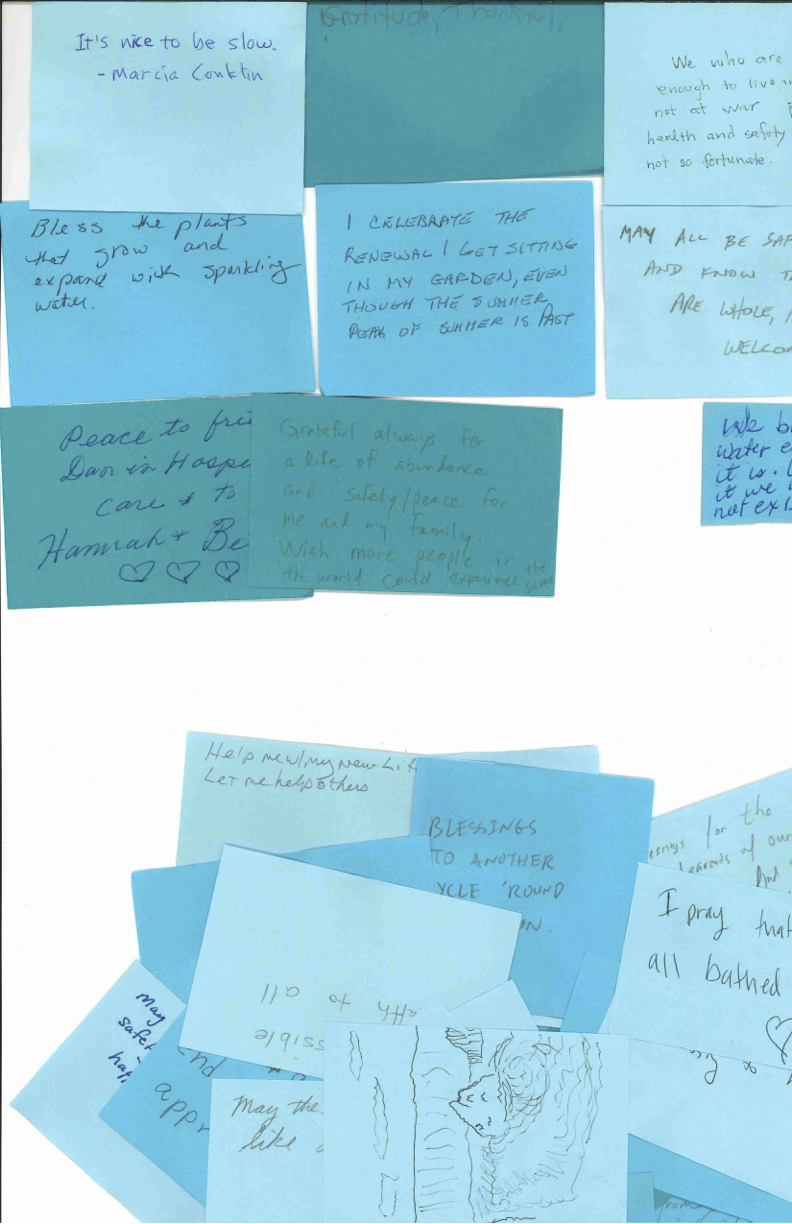 It's nice to be slow.
- Marcia Conklin
Gratitude, Thankful,
We who are
enough to live in
not at war
health and safety
not so fortunate.
Bless the plants
that grow and
expand with sparkling
water.
I CELEBRATE THE
RENEWAL I GET SITTING
IN MY GARDEN, EVEN
THOUGH THE SUMMER
PEAK OF SUMMER IS PAST
MAY ALL BE SAF
AND KNOW T
ARE WHOLE,
WELCO
Peace to frie
Dan in Hospi
care + to
Hannah + Be
Grateful always for
a life of abundance
and safety/peace for
me and my family.
Wish more people in the
the world could experience
water e
it is.
it we
not exis
Help me w/ my new Lif
Let me help others
BLESSINGS
TO ANOTHER
YCLE 'ROUND
ON.
essings for the
of our
And
I pray that
all bathed
alth to all
ssible
May
safe
hap
nd
appr
May the
like a
from